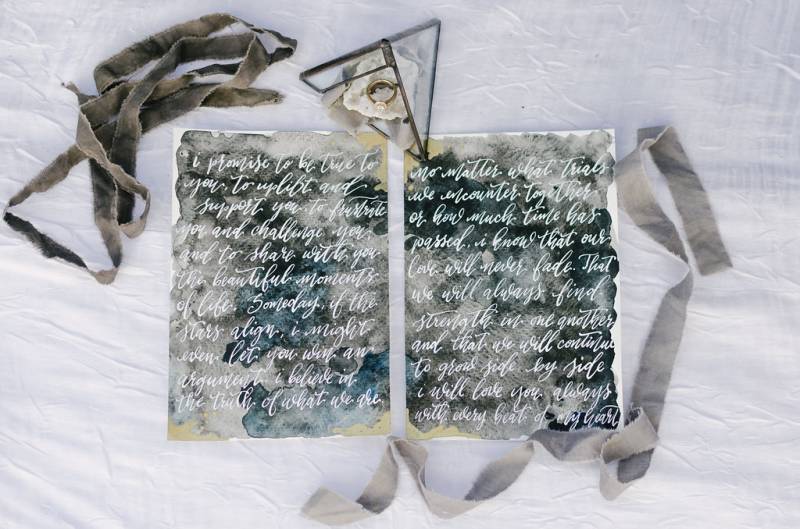 i promise to be true to
you, to uplift and
support you, to frustrate
you and challenge you,
and to share with you
the beautiful moments
of life. Someday, if the
stars align, i might
even let you win an
argument. i believe in
the truth of what we are.
no matter what trials
we encounter together
or how much time has
passed, i know that our
love will never fade. That
we will always find
strength in one another
and that we will continue
to grow side by side
i will love you always
with every beat of my heart